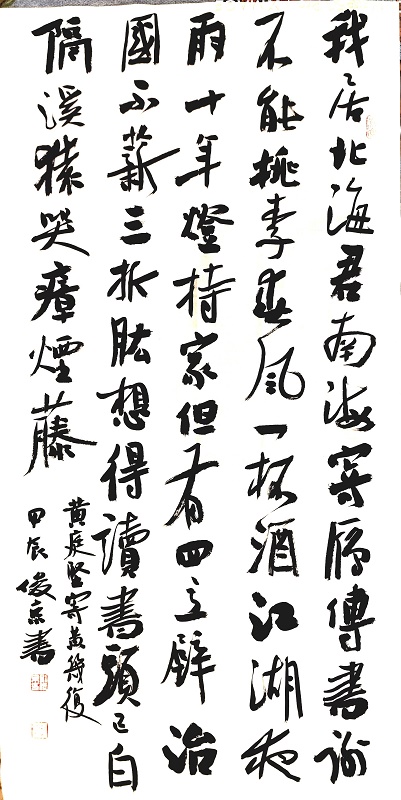 我居北海君南海寄雁傳書謝
不能桃李春風一杯酒江湖夜
雨十年燈持家但有四立壁治
國不蘄三折肱想得讀書頭已白
隔溪猿哭瘴煙藤
黃庭堅寄黃幾復
甲辰俊京書